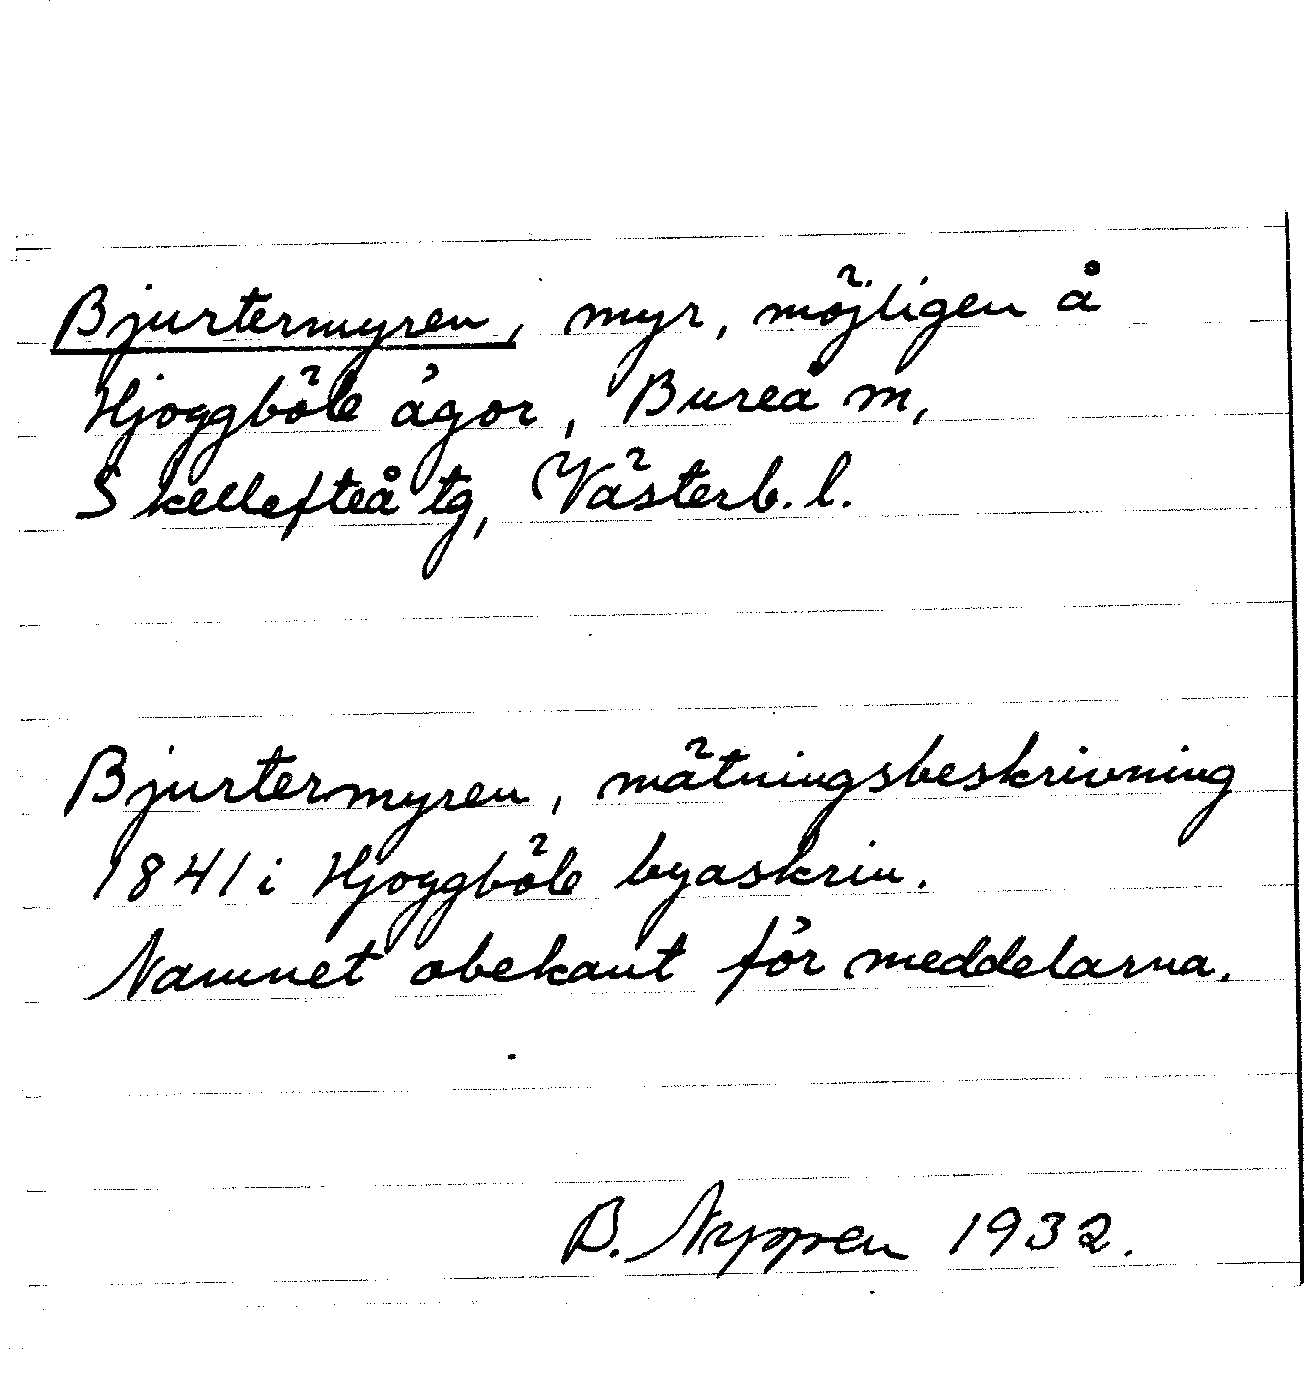 Bjurtermyren, myr, möjligen å
Hjoggböle ägor, Bureå m,
Skellefteå tg, Västerb. l.
Bjurtermyren, mätningsbeskrivning
1841 i Hjoggböle byaskrin.
Namnet obekant för meddelarna.
B. Nyppen 1932.